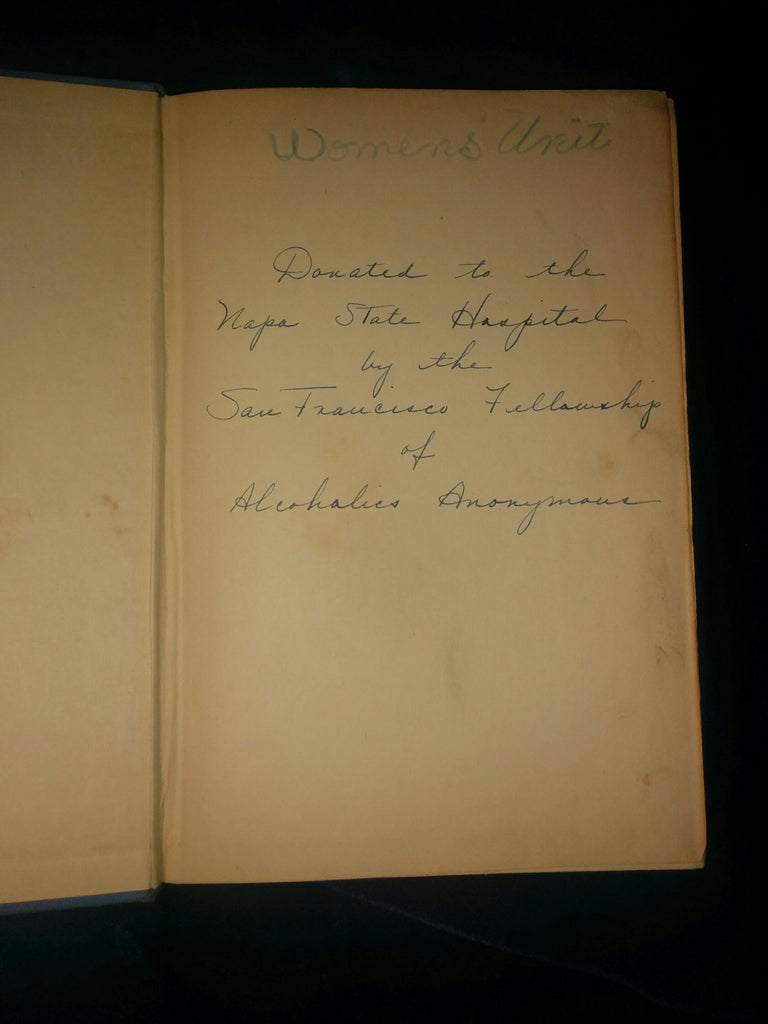 Womens' Unit
Donated to the
Napa State Hospital
by the
San Francisco Fellowship
of
Alcoholics Anonymous